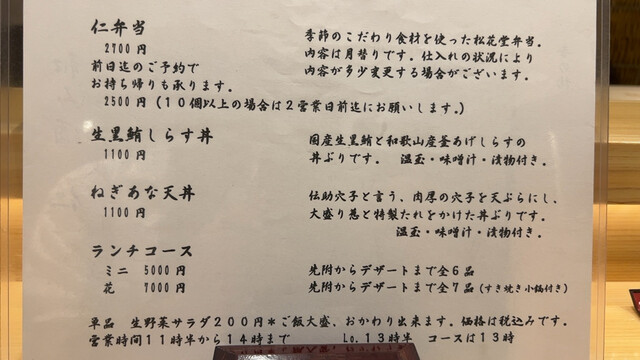 仁弁当　季節のこだわり食材を使った松花堂弁当．
2700円　内容は月替りです．仕入れの状況により
前日迄のご予約で　内容が多少変更する場合がございます．
お持ち帰りも承ります．
2500円（10個以上の場合は2営業日前迄にお願いします．）
生黒鮪しらす丼　国産生黒鮪と和歌山産釜あげしらすの
1100円　丼ぶりです．　温玉・味噌汁・漬物付き．
ねぎあな天丼　伝助穴子と言う、肉厚の穴子を天ぷらにし、
1100円　大盛り葱と特製たれをかけた丼ぶりです．
温玉・味噌汁・漬物付き．
ランチコース
ミニ　5000円　先附からデザートまで全6品
花　7000円　先附からデザートまで全7品（すき焼き小鍋付き）
単品　生野菜サラダ200円＊ご飯大盛、おかわり出来ます．価格は税込みです．
営業時間11時半から14時まで　Lo.13時半　コースは13時